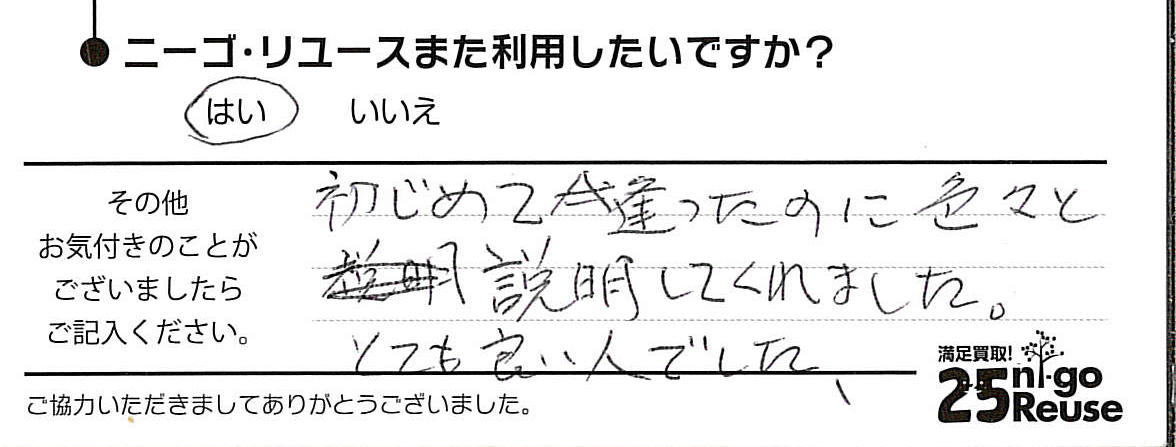 ニーゴ・リユースまた利用したいですか？
はい いいえ
その他
お気付きのことが
ございましたら
ご記入ください。
初じめて逢ったのに色々と
説明してくれました。
とても良い人でした、
満足買取!
25 ni-go
Reuse
ご協力いただきましてありがとうございました。